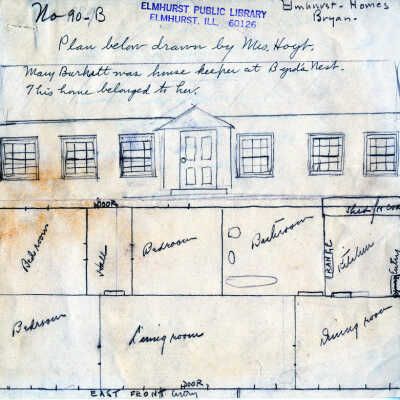 No 90-B
ELMHURST PUBLIC LIBRARY
ELMHURST, ILL. 60126
Elmhurst - Homes
Bryan.
Plan below drawn by Mrs. Hoyt.
Mary Burkett was house keeper at Byrd's Nest.
This home belonged to her.
DOOR
Shed for
Bedroom
Hall
Bedroom
Bathroom
RANGE
Kitchen
Entry
Bedroom
Living room
Dining room
DOOR,
EAST FRONT Entry